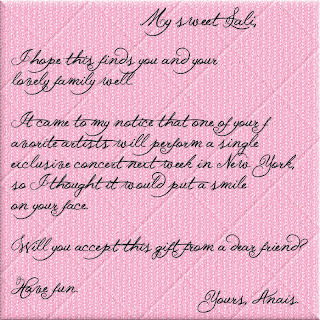 My sweet Sali,
I hope this finds you and your
lovely family well.
It came to my notice that one of your f
avorite artists will perform a single
exclusive concert next week in New York,
so I thought it would put a smile
on your face.
Will you accept this gift from a dear friend?
Have fun.
Yours, Anais.